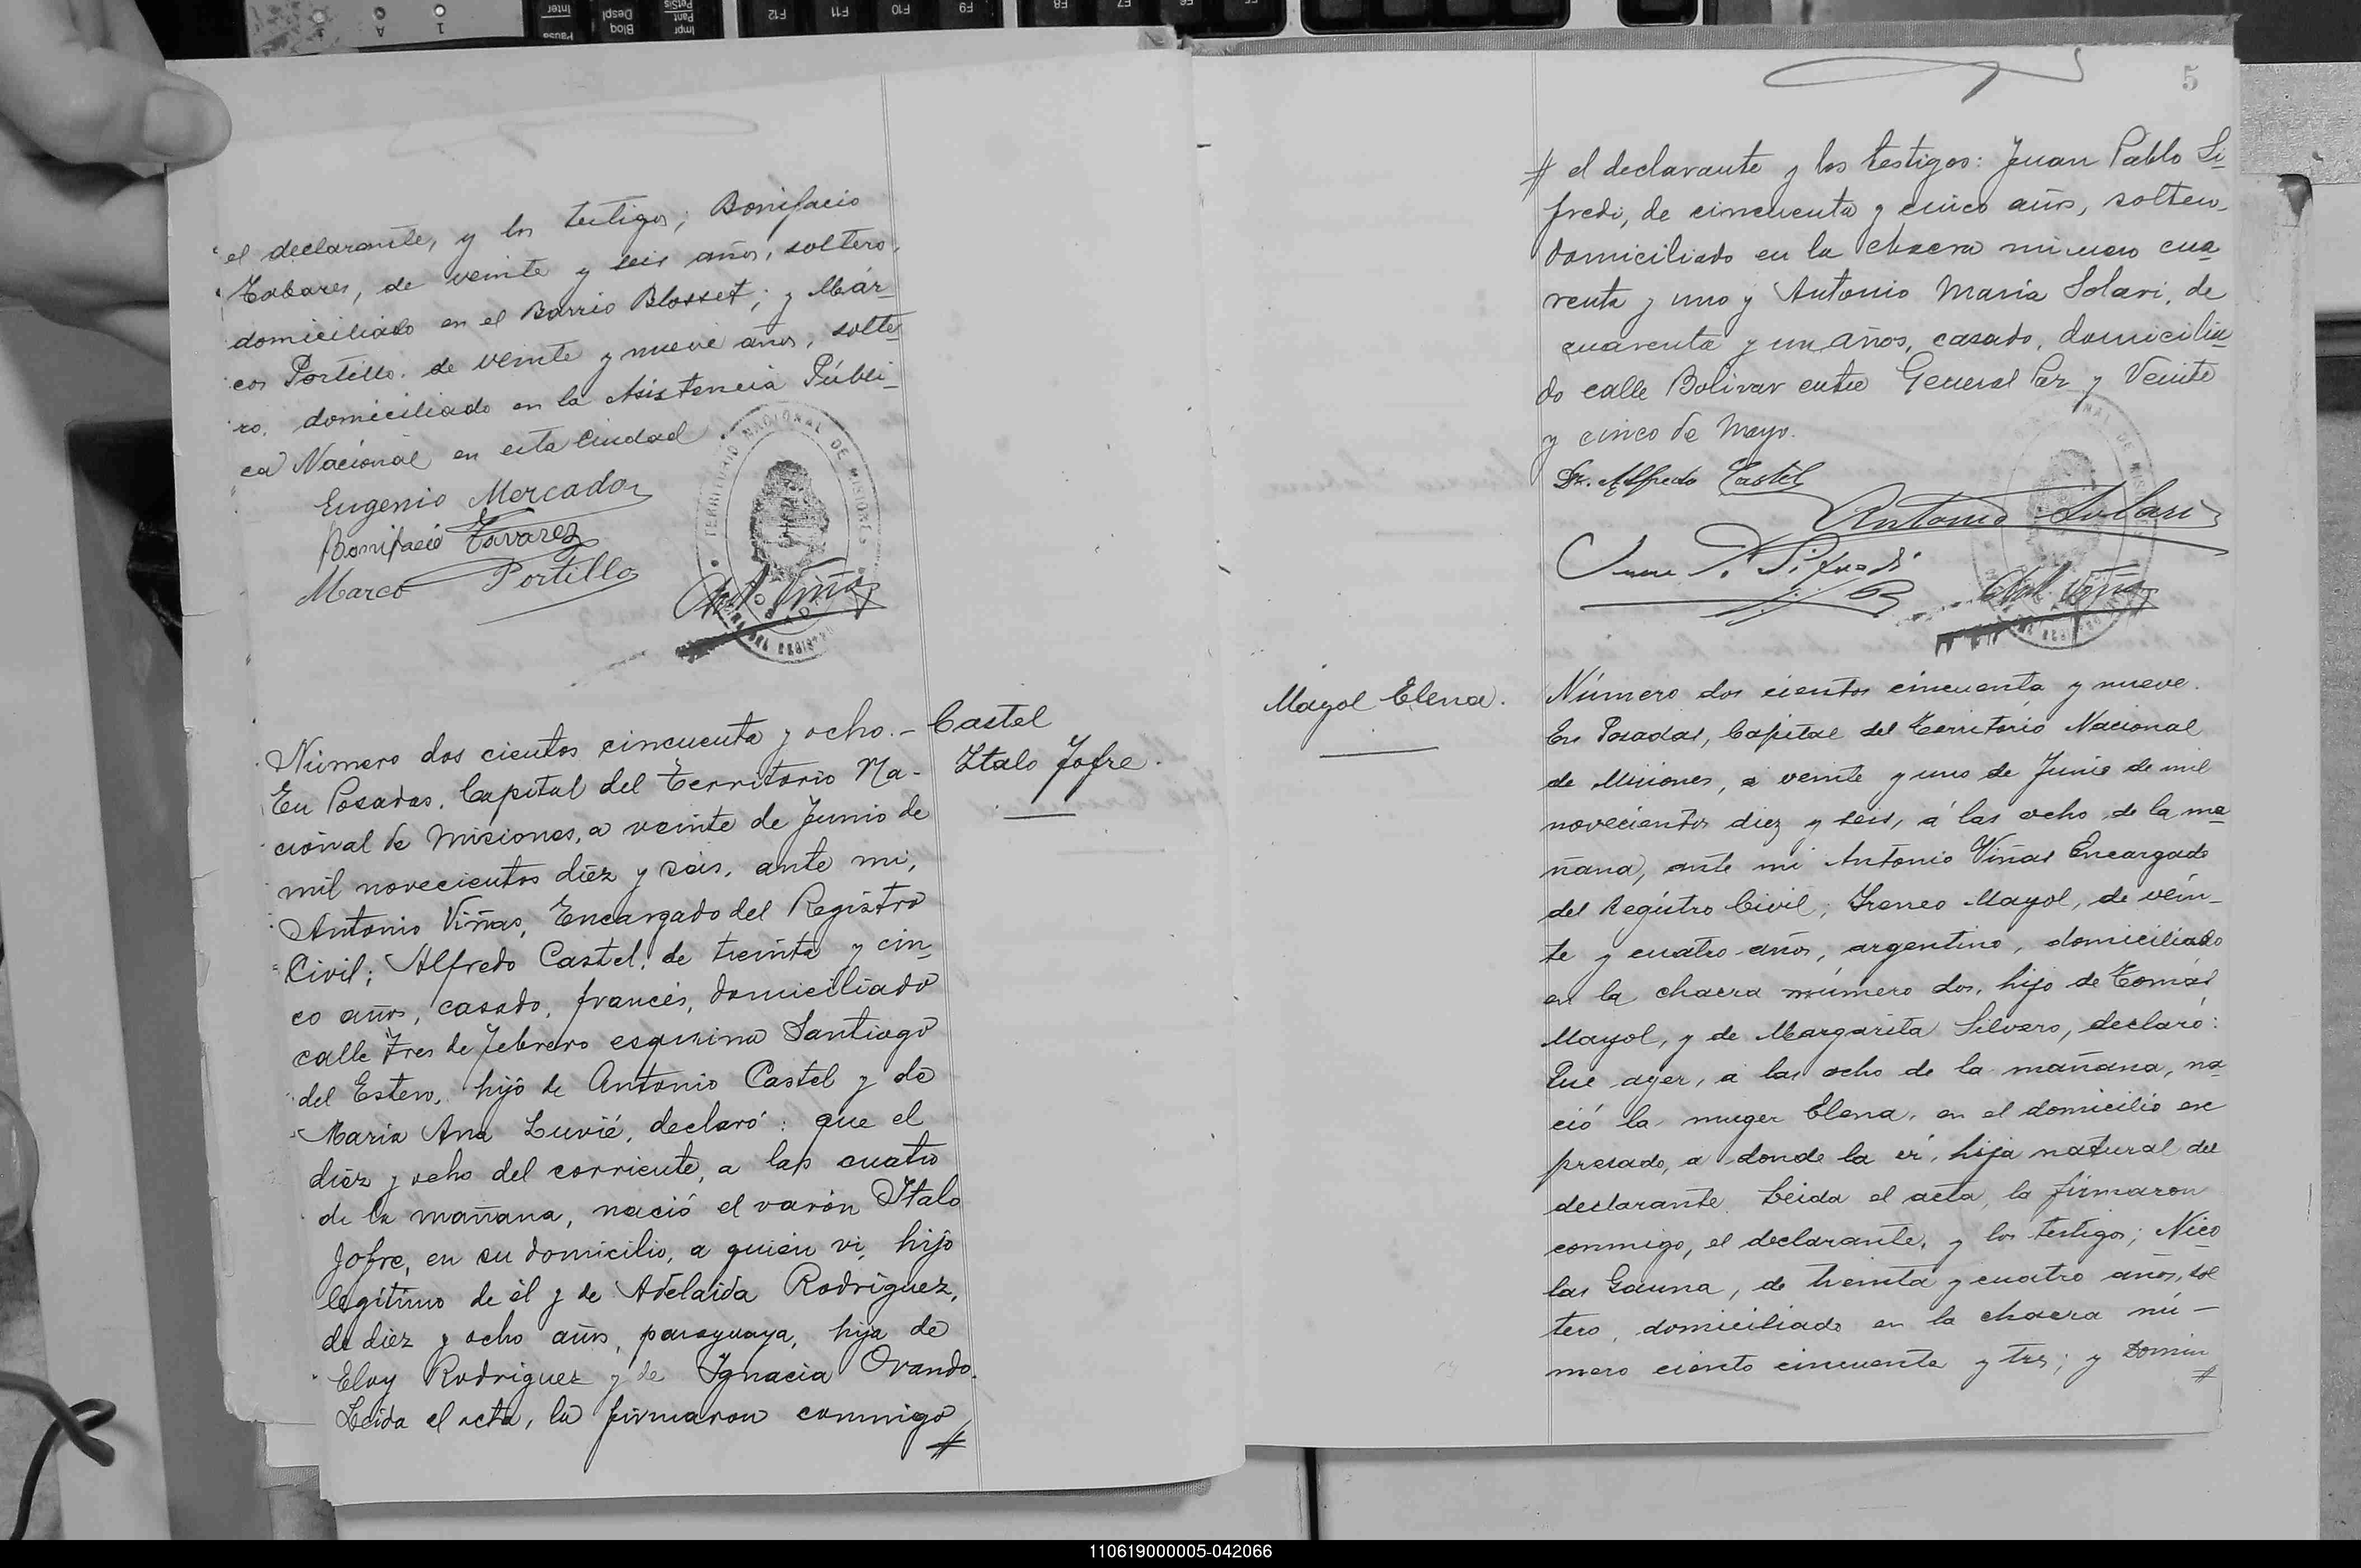 el declarante, y los testigos; Bonifacio
Tabares, de veinte y seis años, soltero,
domiciliado en el Barrio Blosset; y Már_
cos Portillo. de veinte y nueve años, solte_
ro. domiciliado en la Asistencia Públi_
ca Nacional en esta Ciudad
Eugenio Mercado
Bonifacio Tavarez
Marco Portillo
TERRITORIO NACIONAL DE MISIONES
Ant Viñas
Número dos cientos cincuenta y ocho.-
En Posadas, Capital del Territorio Na-
cional de Misiones, a veinte de Junio de
mil novecientos diez y seis, ante mi,
Antonio Viñas, Encargado del Registro
Civil; Alfredo Castel, de treinta y cin_
co años, casado, francés, domiciliado
calle Tres de Febrero esquina Santiago
del Estero, hijo de Antonio Castel y de
Maria Ana Luvié, declaró: que el
diez y ocho del corriente, a las cuatro
de la mañana, nació el varón Italo
Jofre, en su domicilio, a quien vi, hijo
legítimo de él y de Adelaida Rodriguez,
de diez y ocho años, paraguaya, hija de
Eloy Rodriguez y de Ignacia Ovando.
Leida el acta, la firmaron conmigo
#
Castel
Italo Jofre.
5
# el declarante y los testigos: Juan Pablo Si_
fredi, de cincuenta y cinco años, soltero,
domiciliado en la chacra número cua_
renta y uno y Antonio María Solari, de
cuarenta y un años, casado, domicilia_
do calle Bolivar entre General Paz y Veinte
y cinco de Mayo.
Dr. Alfredo Castel
Antonio Solari
Juan P. Sifredi
Ant. Viñas
Mayol Elena.
Número dos cientos cincuenta y nueve.
En Posadas, Capital del Territorio Nacional
de Misiones, a veinte y uno de Junio de mil
novecientos diez y seis, á las ocho de la ma_
ñana, ante mi Antonio Viñas Encargado
del Registro Civil; Ireneo Mayol, de vein_
te y cuatro años, argentino, domiciliado
en la chacra número dos, hijo de Tomás
Mayol, y de Margarita Silvero, declaró:
Que ayer, a las ocho de la mañana, na_
ció la muger Elena, en el domicilio ex
presado, a donde la vi, hija natural del
declarante. Leida el acta, la firmaron
conmigo, el declarante, y los testigos; Nico_
las Gauna, de treinta y cuatro años, sol
tero, domiciliado en la chacra nú-
mero ciento cincuenta y tres; y Domin
#
110619000005-042066